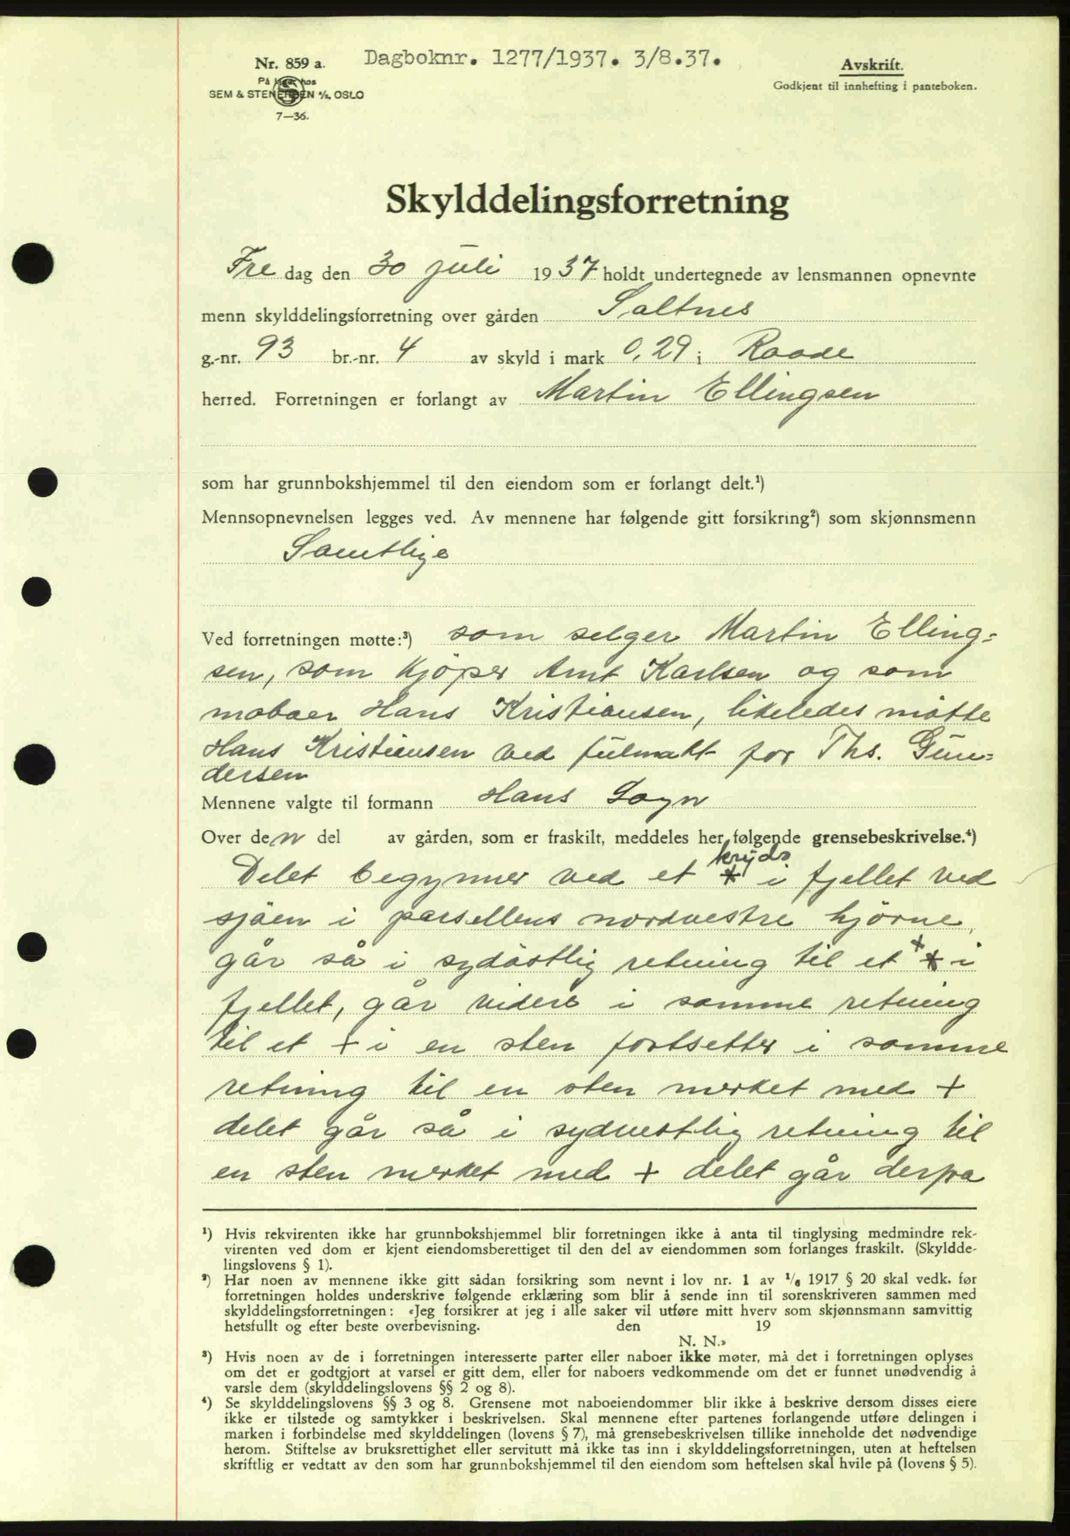 Nr. 859 a.
Dagboknr. 1277/1937. 3/8.37.
Avskrift.
På lager hos
SEM & STENERSEN A/S, OSLO
7—36.
Godkjent til innhefting i panteboken.
Skylddelingsforretning
Fre dag den 30 juli 1937 holdt undertegnede av lensmannen opnevnte
menn skylddelingsforretning over gården Saltnes
g.-nr. 93 br.-nr. 4 av skyld i mark 0,29 i Raade
herred. Forretningen er forlangt av Martin Ellingsen
som har grunnbokshjemmel til den eiendom som er forlangt delt.¹)
Mennsopnevnelsen legges ved. Av mennene har følgende gitt forsikring²) som skjønnsmenn
Samtlige
Ved forretningen møtte:³) som selger Martin Elling-
sen, som kjøper Arnt Karlsen og som
naboer Hans Kristiansen, likeledes møtte
Hans Kristiansen ved fulmakt for Ths. Gun-
dersen
Mennene valgte til formann Hans Sogn
Over den del av gården, som er fraskilt, meddeles her følgende grensebeskrivelse.⁴)
kryds
Delet begynner ved et * i fjellet ved
sjøen i parsellens nordvestre hjørne,
går så i sydøstlig retning til et * i
fjellet, går videre i samme retning
til et + i en sten fortsetter i samme
retning til en sten merket med +
delet går så i sydvestlig retning til
en sten merket med + delet går derfra
¹) Hvis rekvirenten ikke har grunnbokshjemmel blir forretningen ikke å anta til tinglysing medmindre rek-
virenten ved dom er kjent eiendomsberettiget til den del av eiendommen som forlanges fraskilt. (Skyldde-
lingslovens § 1).
²) Har noen av mennene ikke gitt sådan forsikring som nevnt i lov nr. 1 av 1/6 1917 § 20 skal vedk. før
forretningen holdes underskrive følgende erklæring som blir å sende inn til sorenskriveren sammen med
skylddelingsforretningen: «Jeg forsikrer at jeg i alle saker vil utføre mitt hverv som skjønnsmann samvittig
hetsfullt og efter beste overbevisning. den 19
N. N.»
³) Hvis noen av de i forretningen interesserte parter eller naboer ikke møter, må det i forretningen oplyses
om det er godtgjort at varsel er gitt dem, eller for naboers vedkommende om det er funnet unødvendig å
varsle dem (skylddelingslovens §§ 2 og 8).
⁴) Se skylddelingslovens §§ 3 og 8. Grensene mot naboeiendommer blir ikke å beskrive dersom disses eiere
ikke er tilstede og samtykker i beskrivelsen. Skal mennene efter partenes forlangende utføre delingen i
marken i forbindelse med skylddelingen (lovens § 7), må grensebeskrivelsen tillike inneholde det nødvendige
herom. Stiftelse av bruksrettighet eller servitutt må ikke tas inn i skylddelingsforretningen, uten at heftelsen
skriftlig er vedtatt av den som har grunnbokshjemmel til den eiendom som heftelsen skal hvile på (lovens § 5).